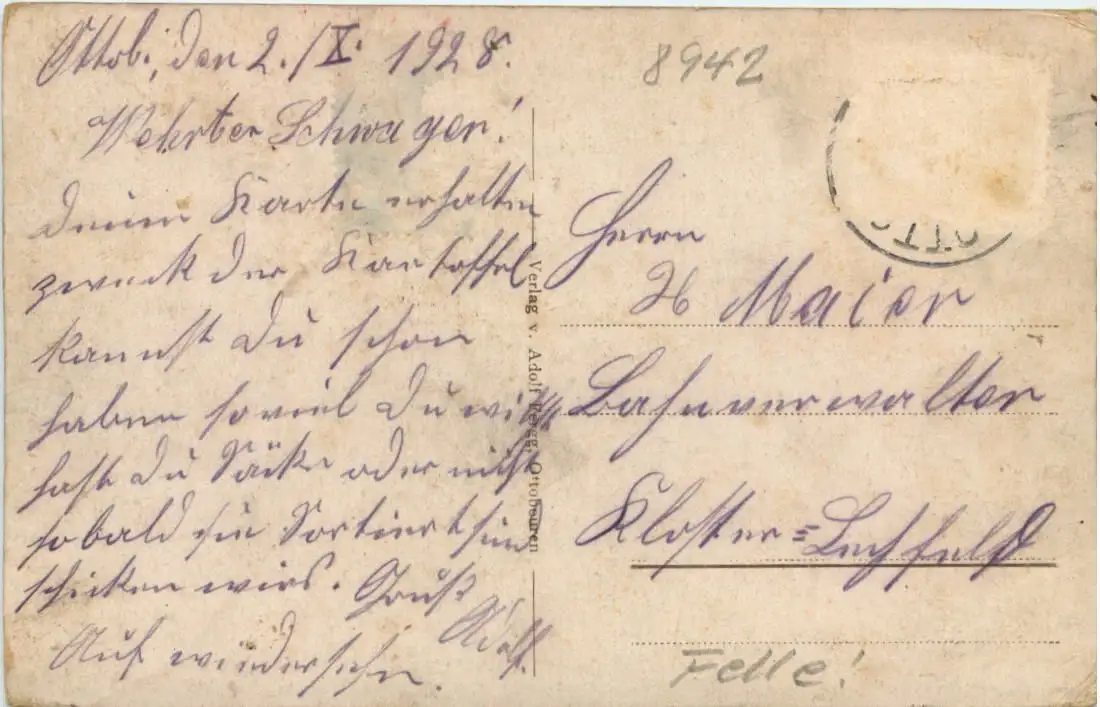 Ottob., den 2./X. 1928.
Wehrter Schwager!
Deine Karte erhalten
zweck der Kartoffel
kannst Du schon
haben so viel Du willst
hast Du Säcke oder nicht
sobald sie Sortiert sind
schicken wirs. Gruß
Adolf.
Auf wiedersehn.
Verlag v. Adolf Ottobeuren
8942
OTTO
Herrn
Maier
Bahnverwalter
Kloster=Lechfeld
Felle!